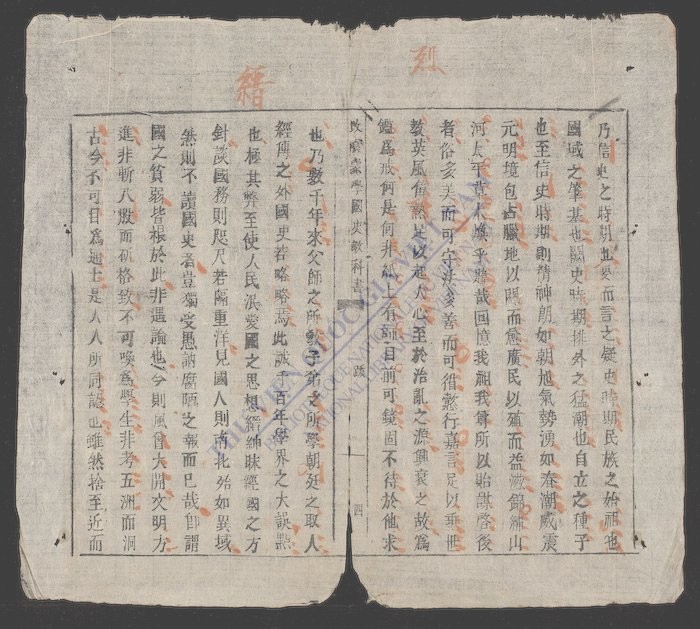 烈
縉
乃信史之時期也要而言之疑史時期民族之始祖也
國域之肇基也闕史時期排外之猛潮也自立之種子
也至信史時期則精神朗如朝旭氣勢湧如春潮威震
元明境包占臘地以闢而愈廣民以殖而益滋錦繡山
河太平草木煥乎懿哉回憶我祖我宗所以貽謀啓後
者俗多美而可守法多善而可循懿行嘉言足以垂世
教英風偉烈足以起人心至於治亂之源興衰之故爲
鑑爲戒何是何非紙上有師目前可鏡固不待於他求
改良蒙學國史教科書 跋 四
也乃數千年來父師之所教子弟之所學朝廷之取人
經傳之外國史若略略焉此誠千百年學界之大誤點
也極其弊至使人民泯愛國之思想縉紳昧經國之方
針談國務則咫尺若隔重洋見國人則南北殆如異域
然則不讀國史者豈獨受愚訥腐陋之報而已哉卽謂
國之貧弱皆根於此非過論也今則風會大開文明方
進非斬八股而斫格致不可喚爲學生非考五洲而洞
古今不可目爲通士是人人所同認也雖然捨至近而
THU VIEN QUOC GIA VIET NAM
BIBLIOTHEQUE NATIONALE
NATIONAL LIBRARY